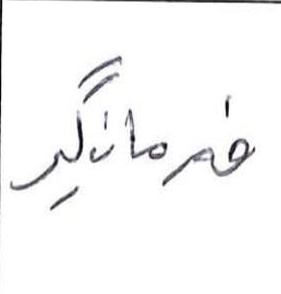 فرمانگیر